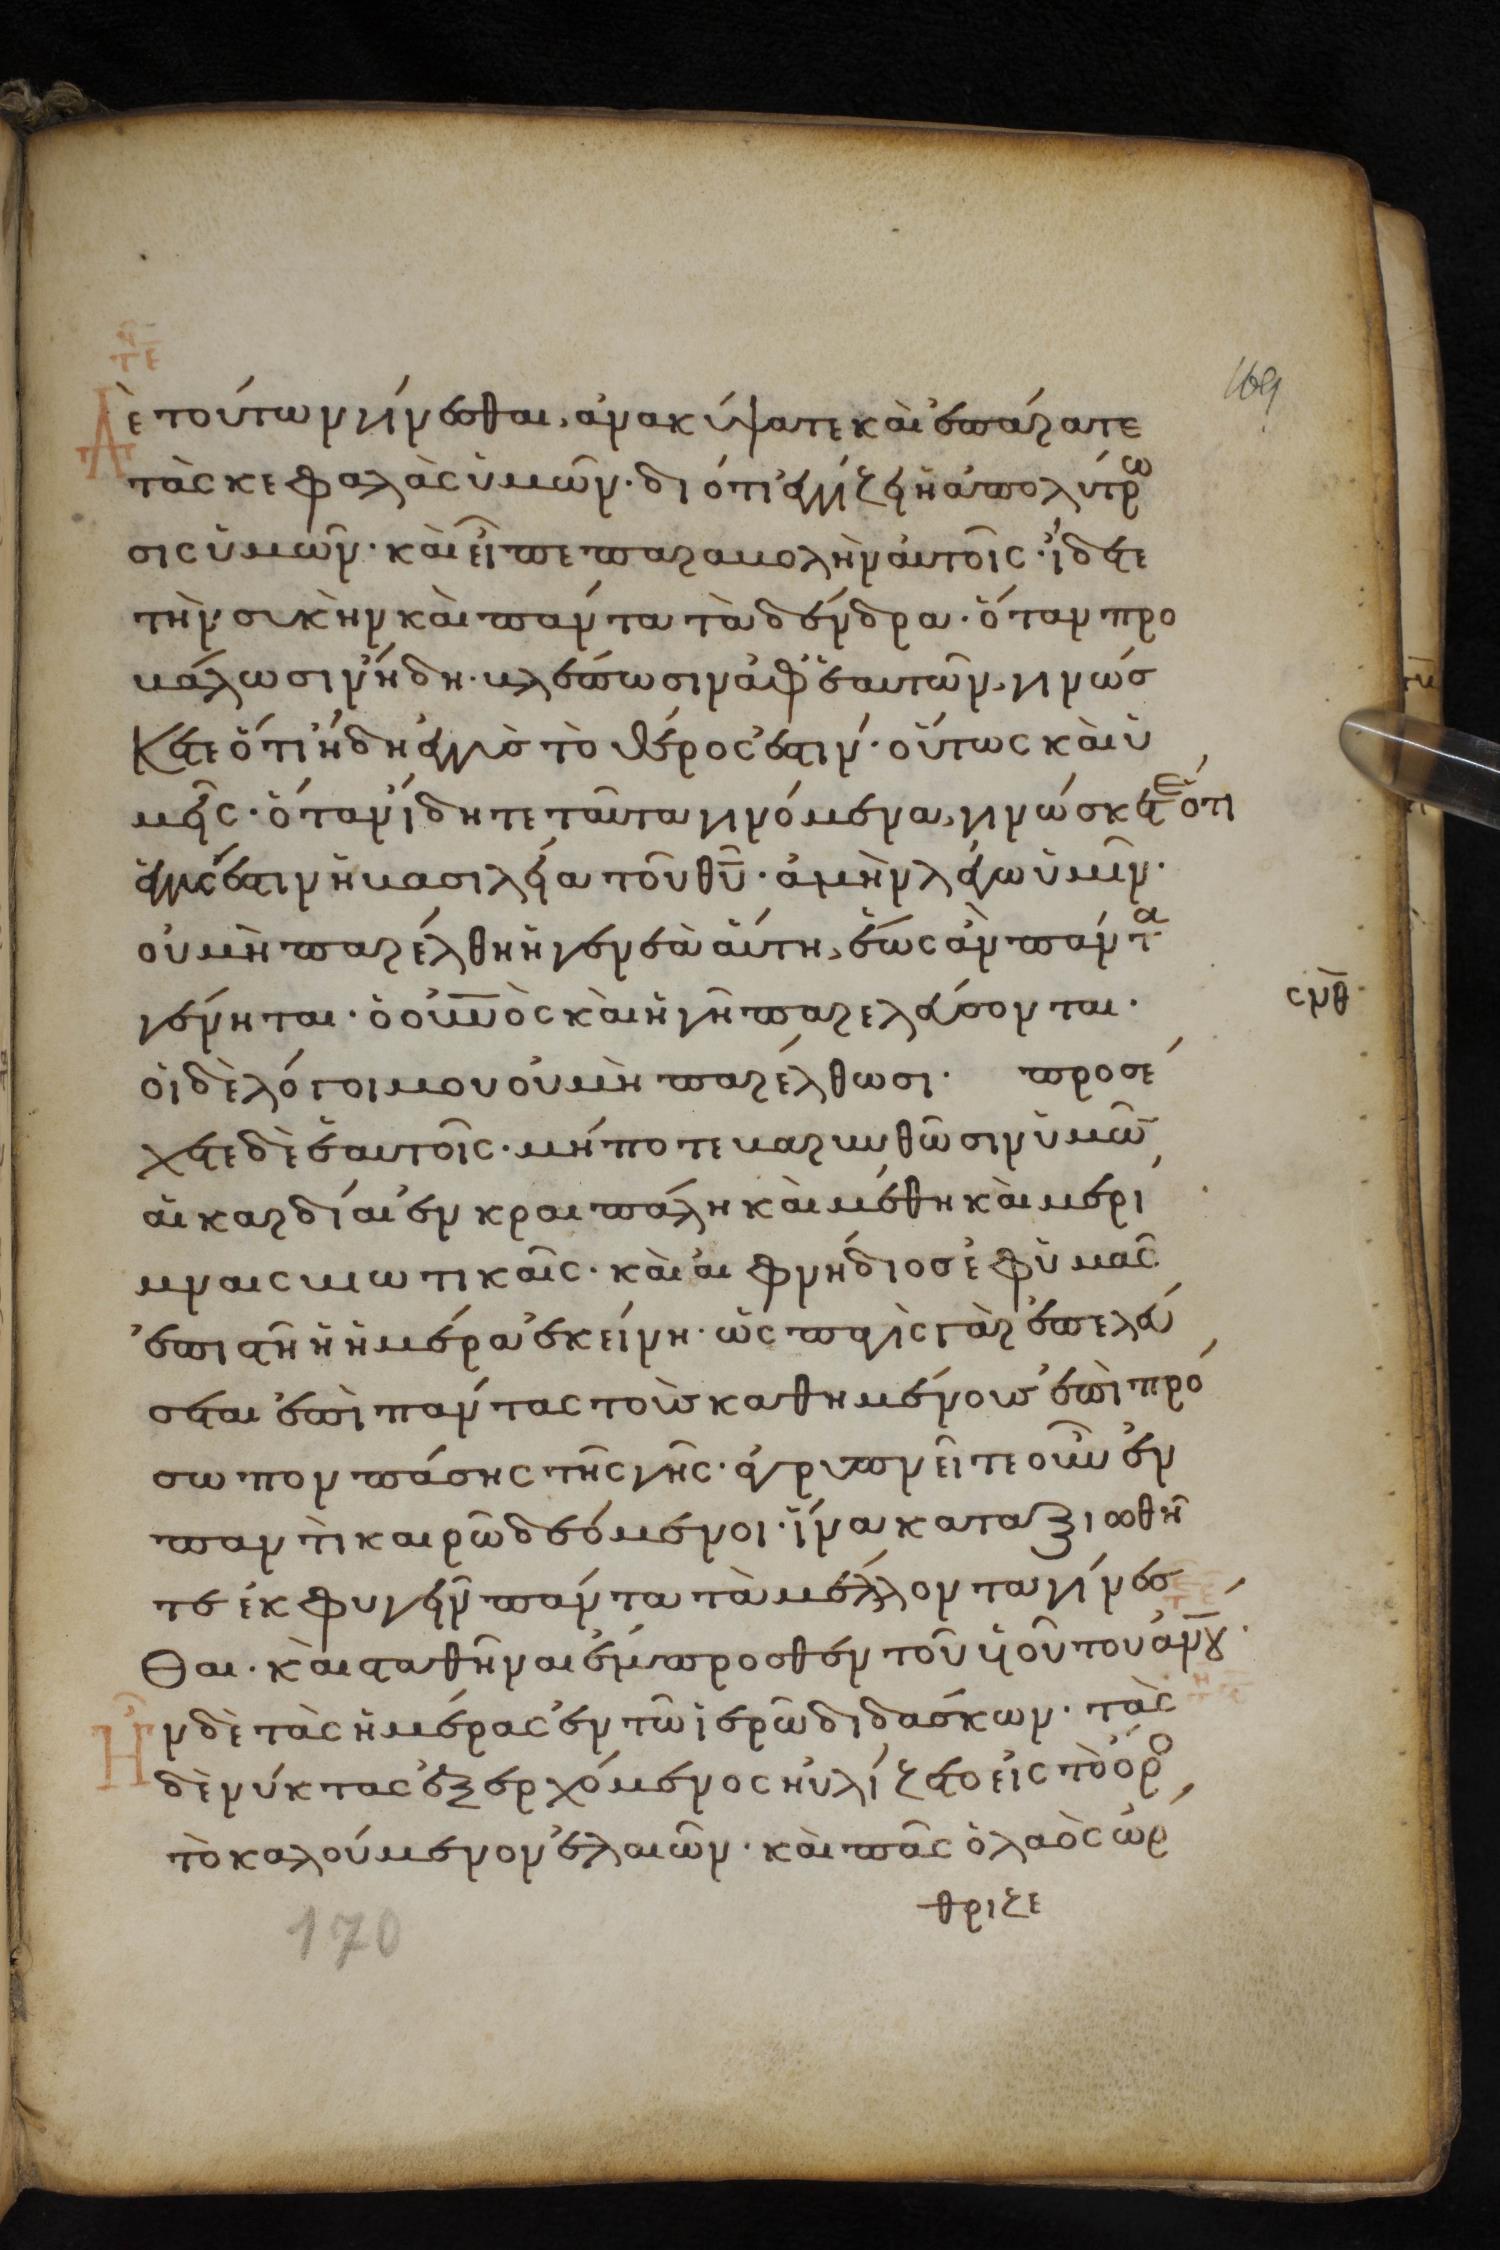 169
ὲ τούτων γίνεσθαι, ἀνακύψατε καὶ ἐπάρατε
τὰς κεφαλὰς ὑμῶν· διότι ἐγγίζει ἡ ἀπολύτρω
σις ὑμῶν· καὶ εἶπε παραβολὴν αὐτοῖς· ἴδετε
τὴν συκὴν καὶ πάντα τὰ δένδρα· ὅταν προ
βάλωσιν ἤδη· βλέπωσιν ἀφ' ἑαυτῶν, γινώσ
κετε ὅτι ἤδη ἐγγὺς τὸ θέρος ἐστίν· οὕτως καὶ ὑ
μεῖς· ὅταν ἴδητε ταῦτα γινόμενα, γινώσκετε ὅτι
ἐγγύς ἐστιν ἡ βασιλεία τοῦ θῦ· ἀμὴν λέγω ὑμῖν·
οὐ μὴ παρέλθη ἡ γενεὰ αὕτη, ἕως ἂν πάντα
γένηται· ὁ οὐνὸς καὶ ἡ γῆ παρελεύσονται·
οἱ δὲ λόγοι μου οὐ μὴ παρέλθωσι· προσέ
χετε δὲ ἑαυτοῖς· μήποτε βαρυνθῶσιν ὑμῶ
αἱ καρδίαι ἐν κραιπάλη καὶ μέθη καὶ μερί
μναις βιωτικαῖς· καὶ αἰφνήδιος ἐφ' ὑμᾶς
ἐπιστῆ ἡ ἡμέρα ἐκείνη· ὡς παγὶς γὰρ ἐπελεύ
σεται ἐπὶ πάντας τοὺς καθημένους ἐπὶ πρό
σωπον πάσης τῆς γῆς· ἀγρυπνεῖτε οὖν ἐν
παντὶ καιρῶ δεόμενοι· ἵνα καταξιωθῆ
τε ἐκφυγεῖν πάντα τὰ μέλλοντα γίνεσ
θαι· καὶ σταθῆναι ἔμπροσθεν τοῦ υἱοῦ του ἀνου·
Ἦν δὲ τὰς ἡμέρας ἐν τῶ ἱερῶ διδάσκων· τὰς
δὲ νύκτας ἐξερχόμενος ηὐλίζετο εἰς τὸ ὄρο
τὸ καλούμενον ἐλαιῶν· καὶ πᾶς ὁ λαὸς ὤρ
θριζε
170
σνθ